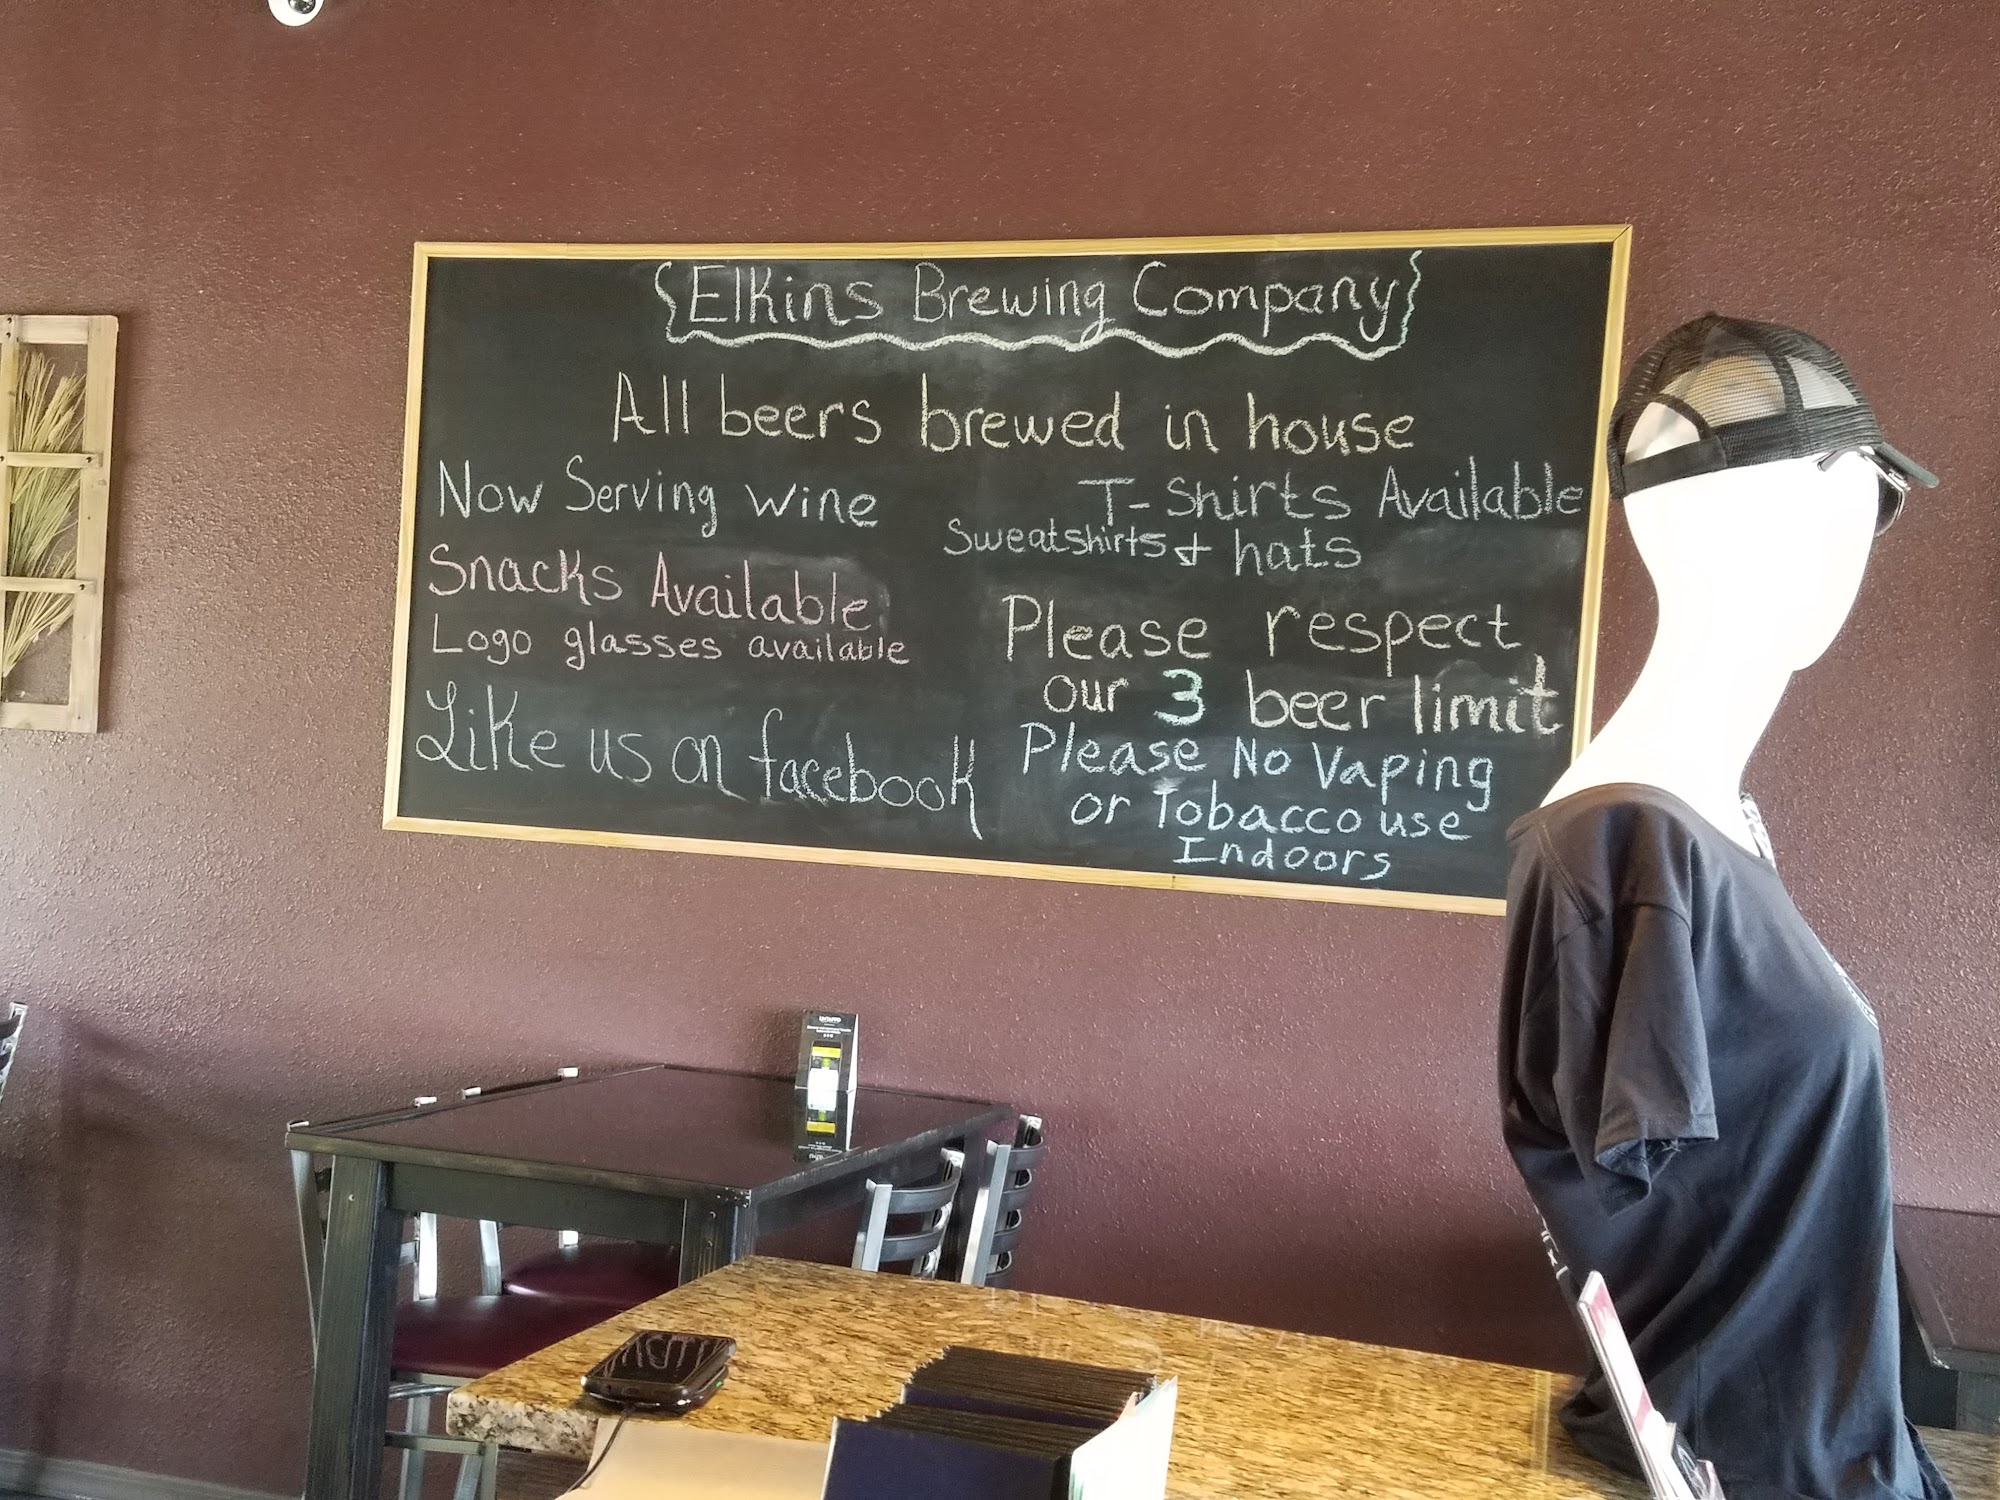 Elkins Brewing Company
All beers brewed in house
Now Serving wine
Snacks Available
Logo glasses available
Like us on facebook
T-Shirts Available
Sweatshirts + hats
Please respect
our 3 beer limit
Please No Vaping
or Tobacco use
Indoors